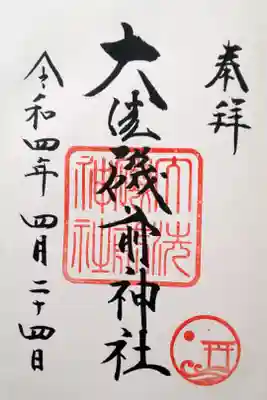 奉拝
大洗磯前神社
大洗磯前神社
令和四年 四月二十四日